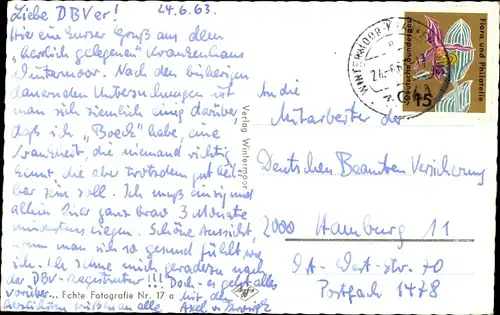 Liebe DBVer! 24.6.63.
Hier ein kurzer Gruß aus dem
"herrlich gelegenen" Krankenhaus
Wintermoor. Nach den bisherigen
dauernden Untersuchungen ist
man sich ziemlich einig darüber,
daß ich "Boeck" habe, eine
Krankheit, die niemand richtig
kennt, die aber trotzdem gut heil-
bar sein soll. Ich muß einzig und
allein hier ganz brav 3 Monate
mindestens liegen. Schöne Aussicht,
wenn man sich so gesund fühlt wie
ich. Ich sehne mich geradezu nach
der DBV-Registratur!!! Doch es geht alles
vorüber...
Mit den
Wünschen an alle
Axel v.
Echte Fotografie Nr. 17 a
Verlag Wintermoor
WINTERMOOR
Deutsche Bundespost
Flora und Philatelie
15
An die
Mitarbeiter der
Deutschen Beamten Versicherung
2000 Hamburg 11
Ost-West-Str. 70
Postfach 1478